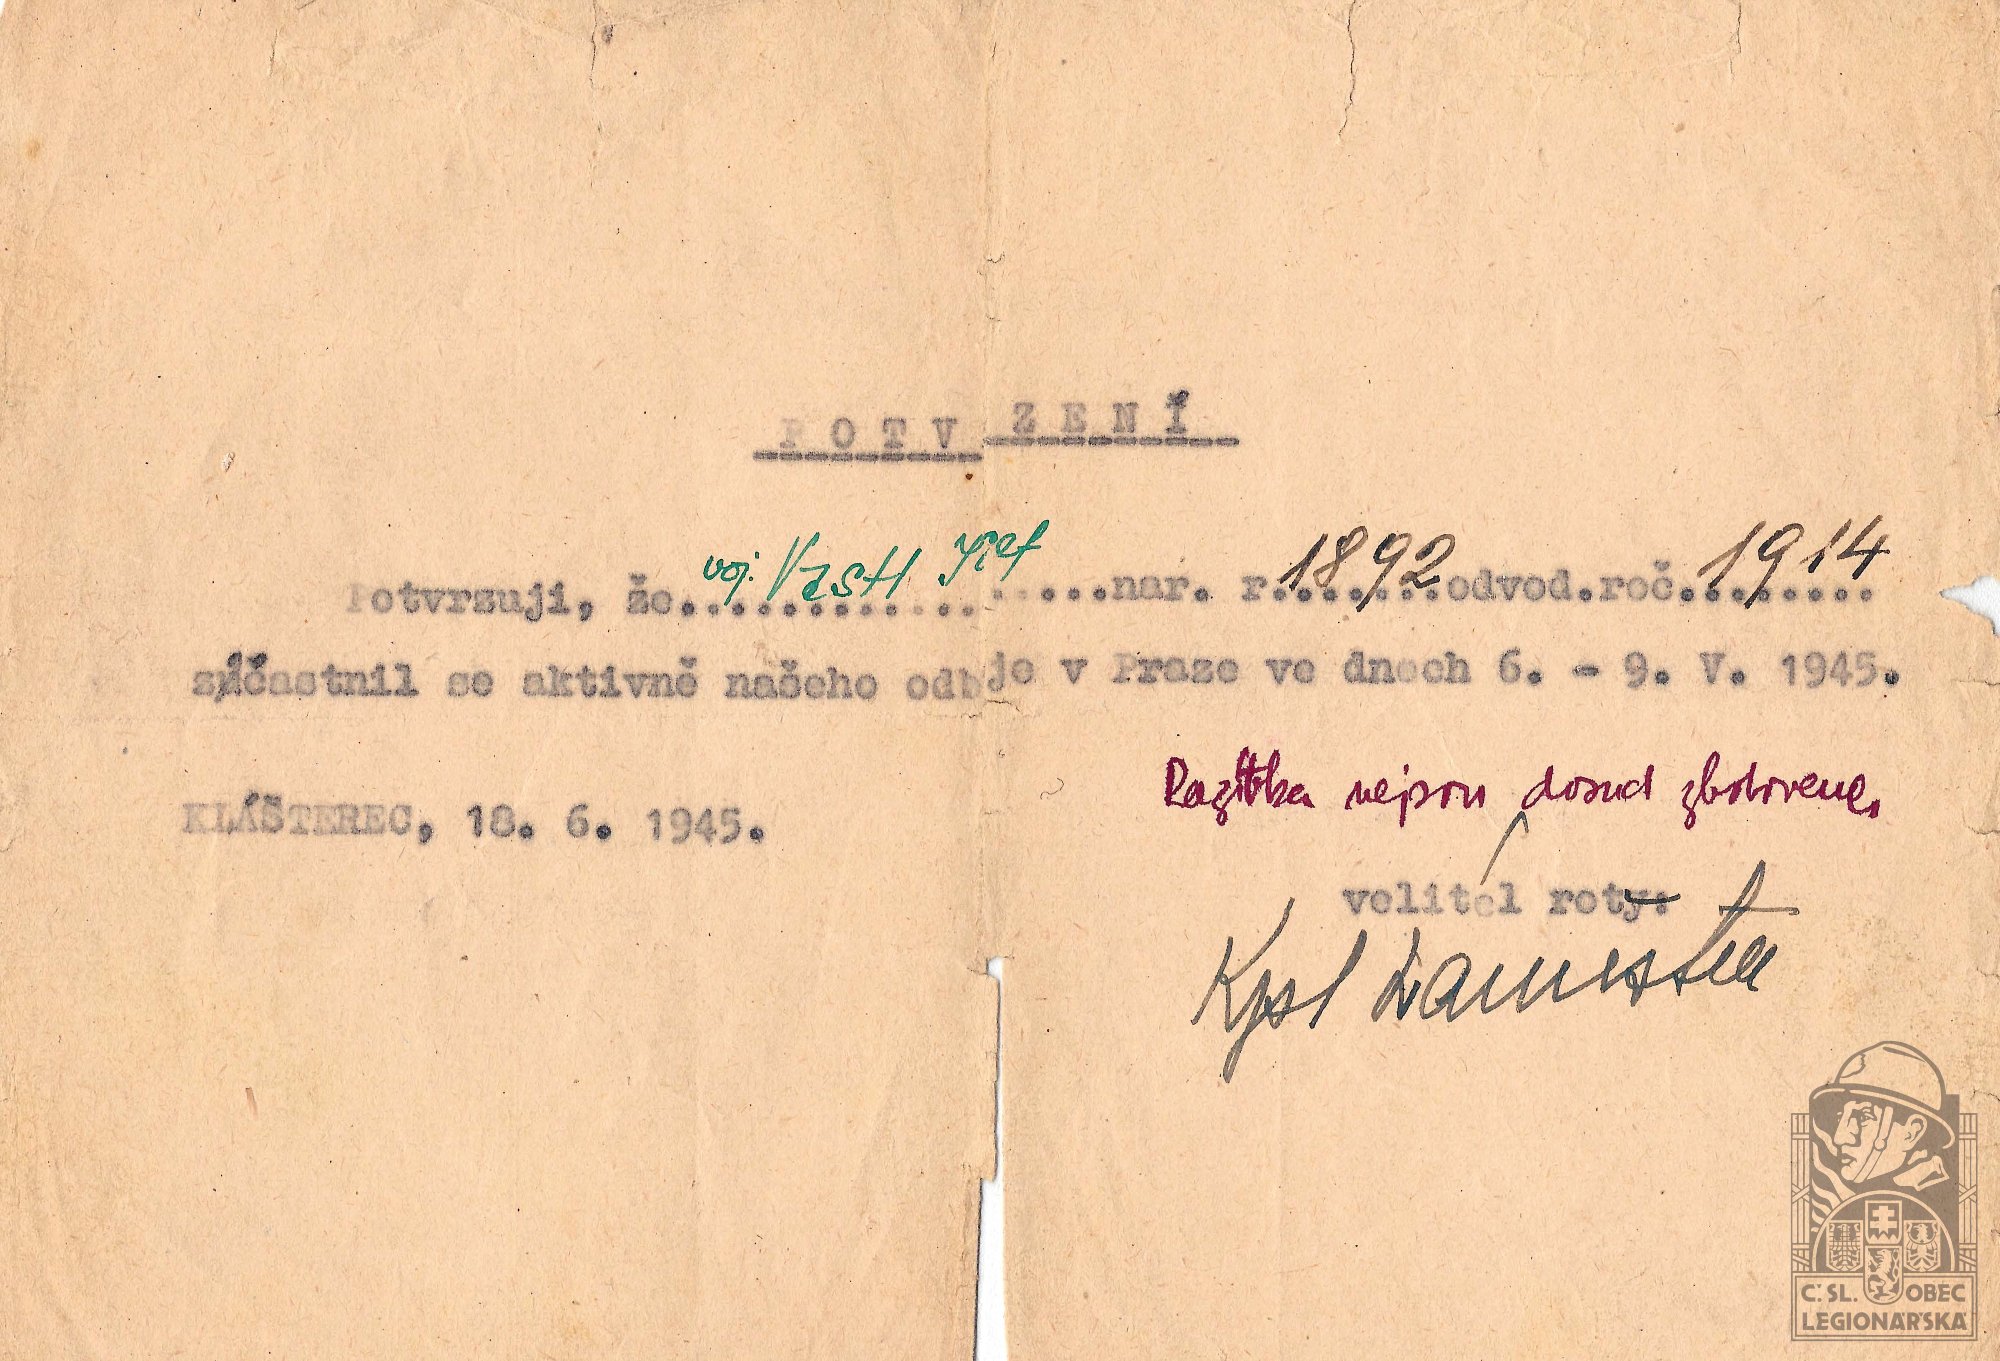 POTVRZENÍ
Potvrzuji, že voj. ............ nar. r. 1892 odvod.roč. 1914
súčastnil se aktivně našeho odboje v Praze ve dnech 6. - 9. V. 1945.
Razítka nejsou dosud zhotovena.
KLÁŠTEREC, 18. 6. 1945.
velitel roty:
C.SL. OBEC
LEGIONÁŘSKÁ